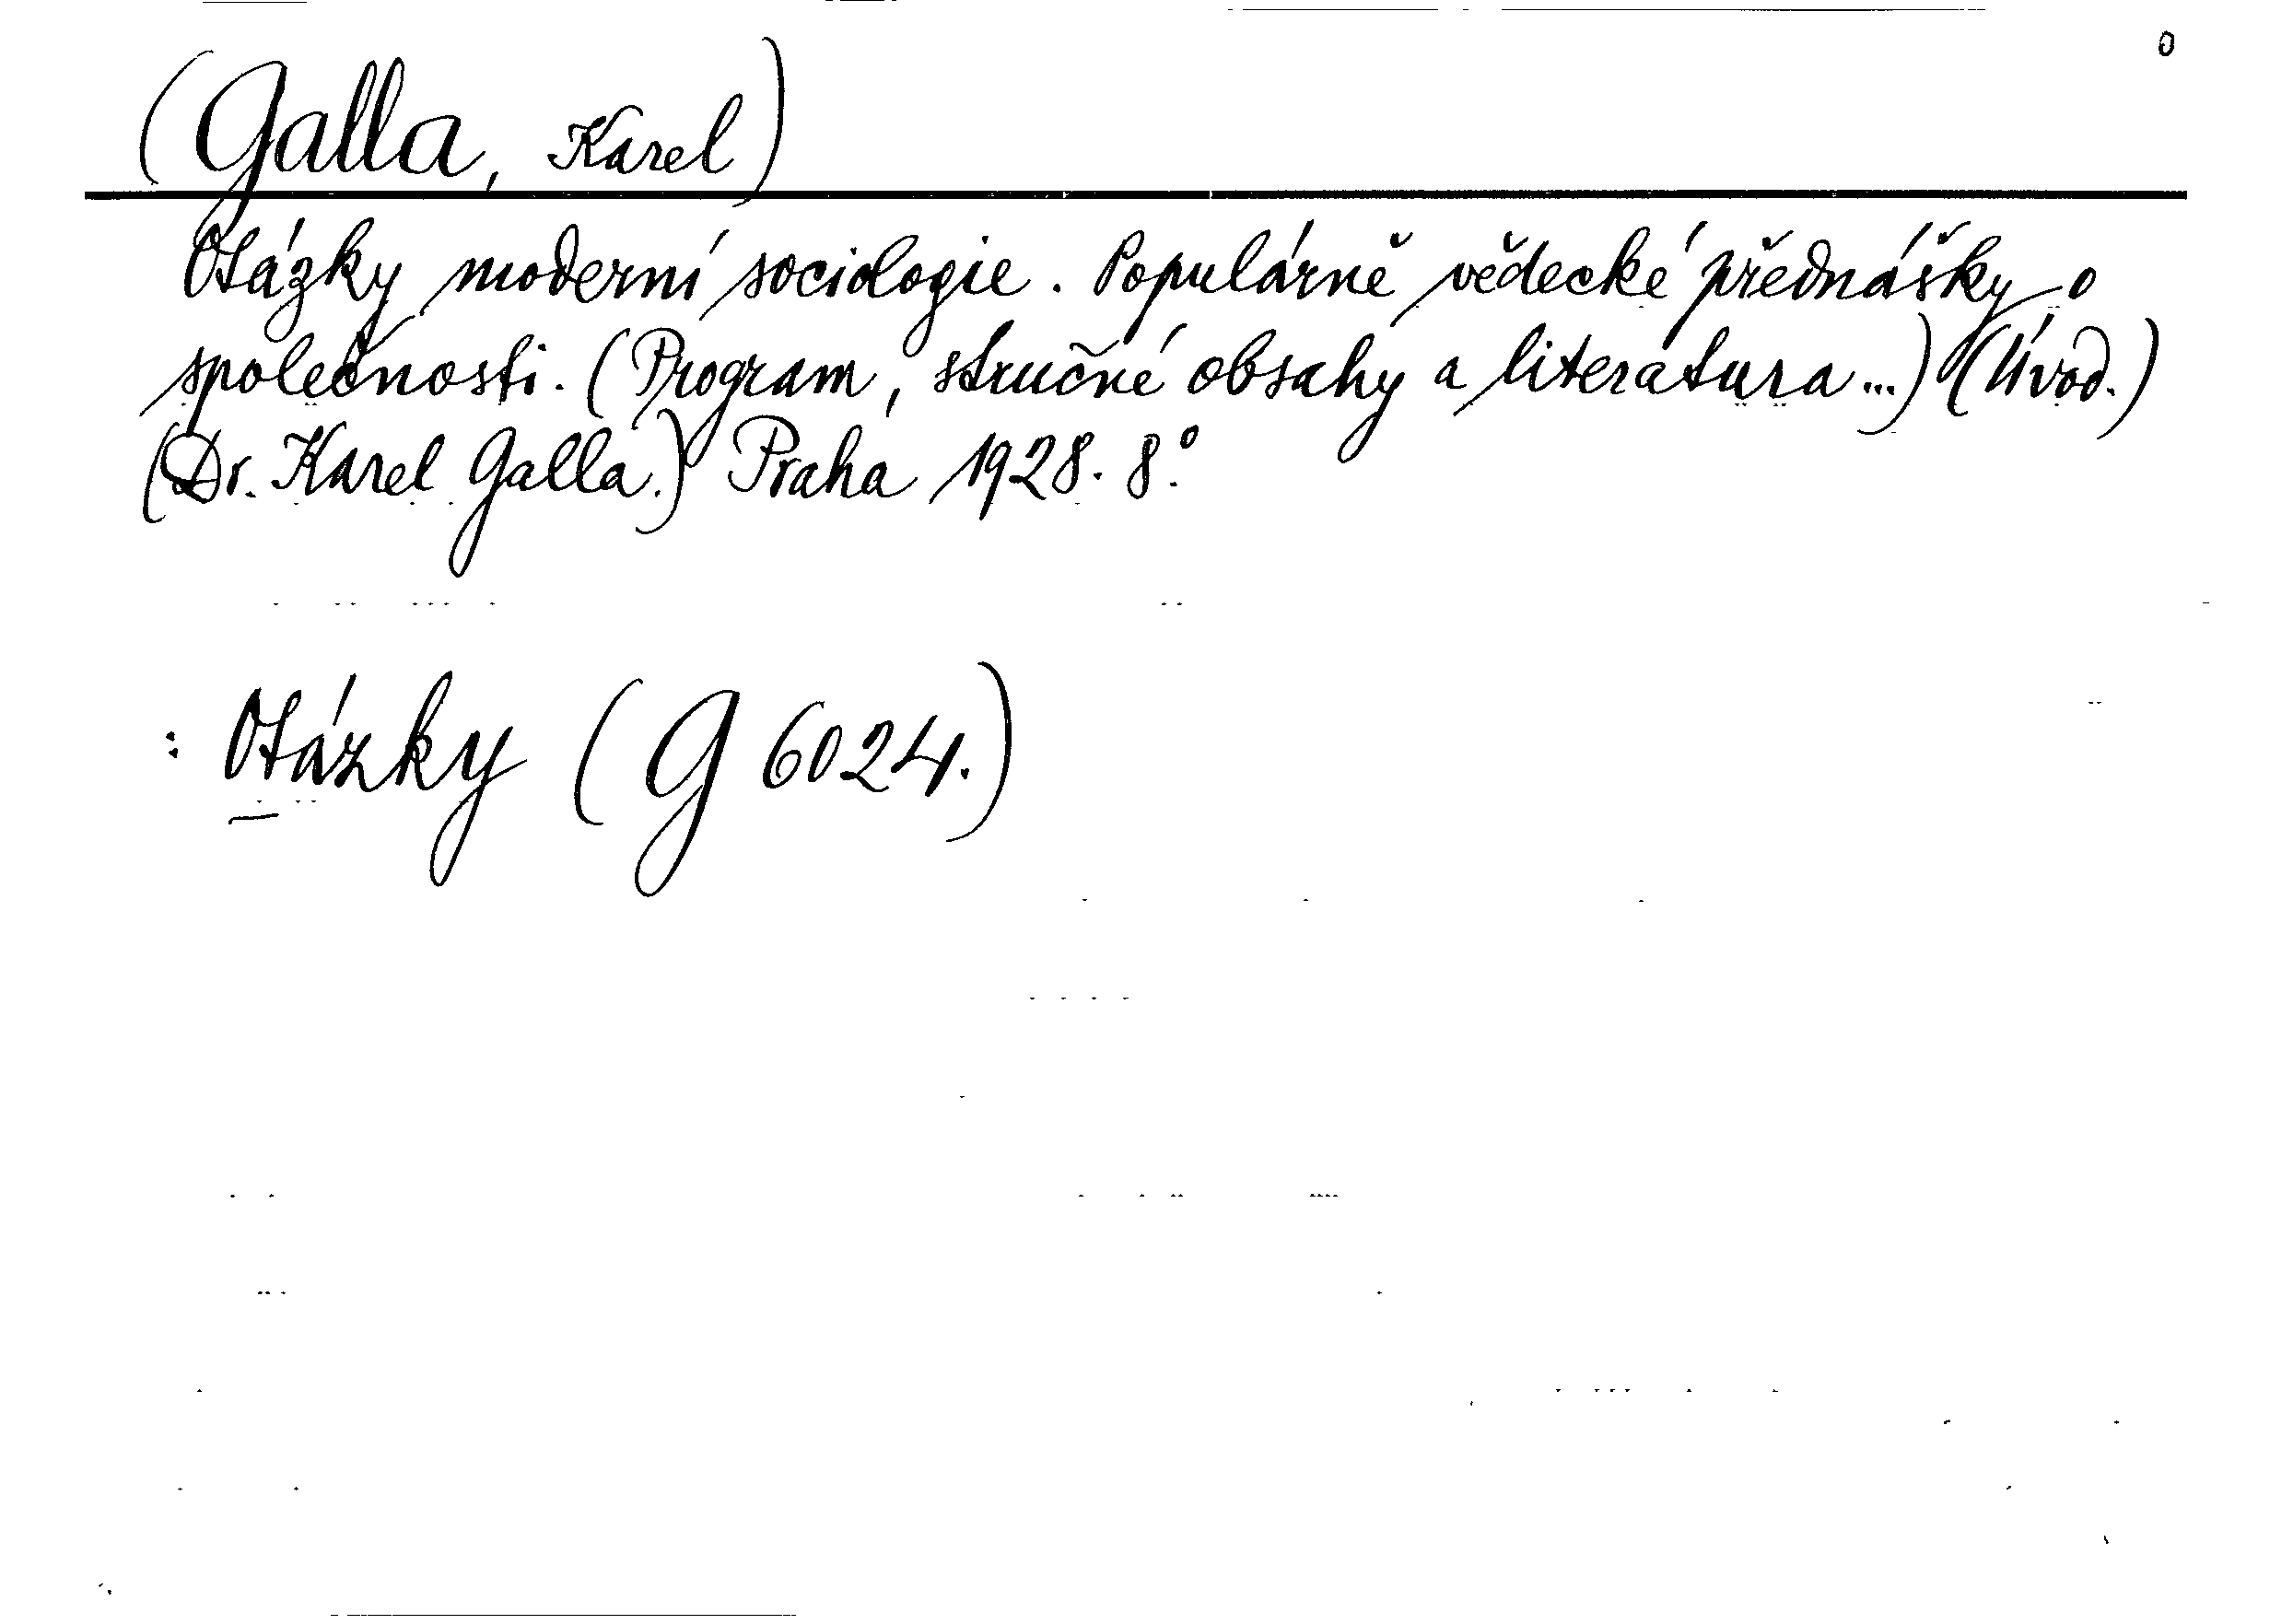 0
(Galla, Karel)
Otázky moderní sociologie. Populárně vědecké přednášky o
společnosti. (Program, stručné obsahy a literatura...) (Úvod.)
(Dr. Karel Galla.) Praha 1928. 8.°
: Otázky (G 6024.)